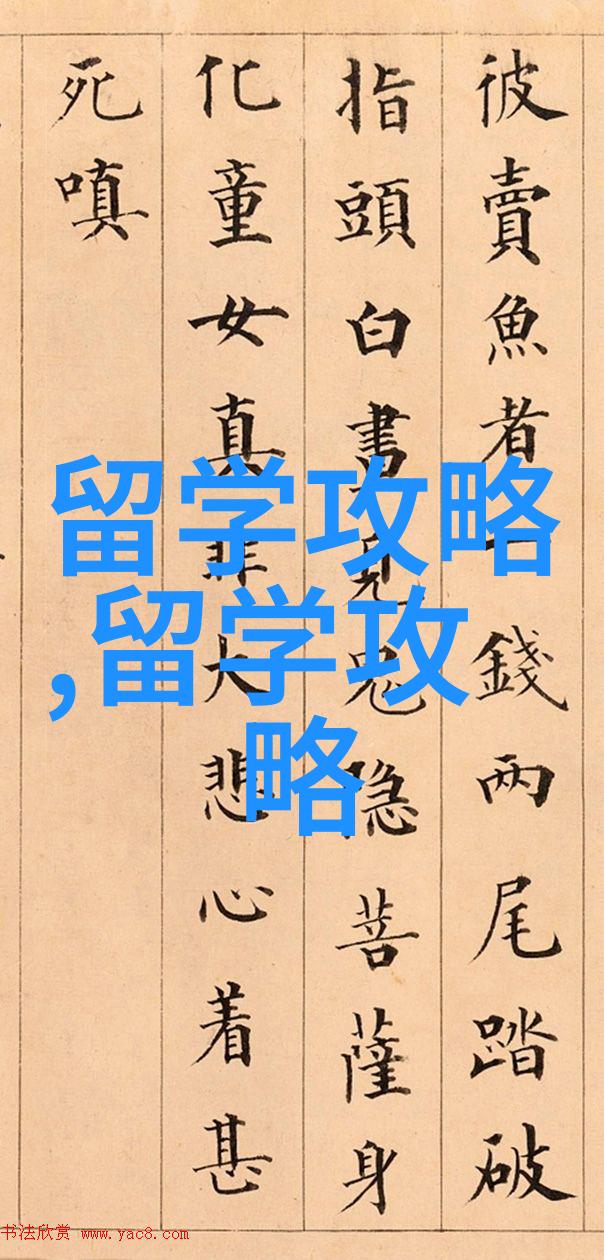 彼賣魚者一錢两尾踏破
指頭白書見鬼隐菩薩身
化童女真非大悲心着甚
死嗔
留学攻略
,留学攻
略
书法欣赏 www.yac8.com